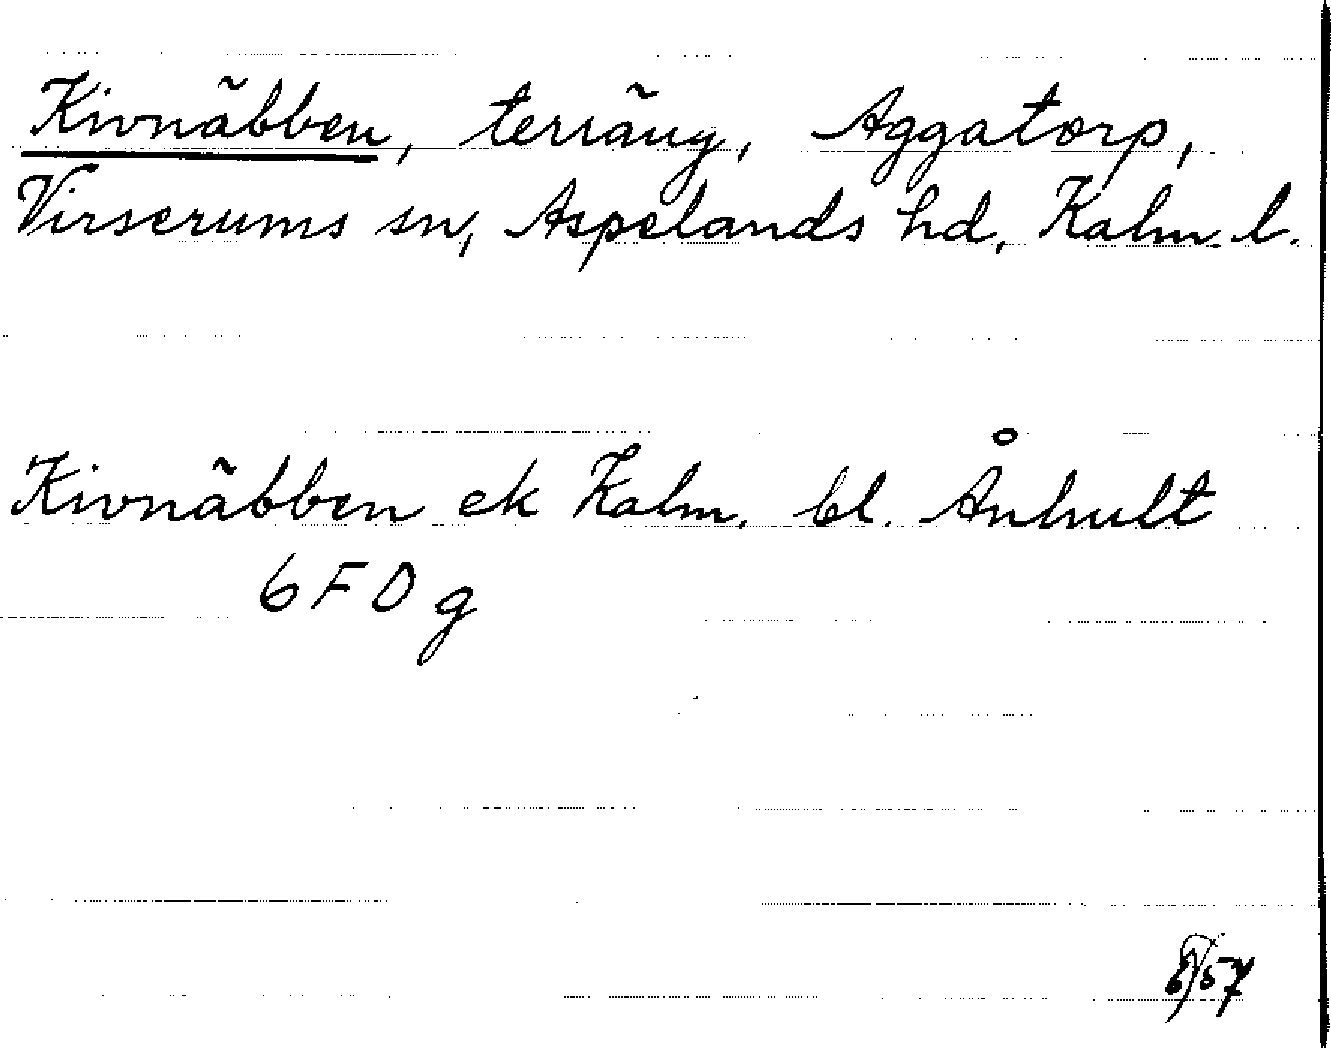 Kivnäbben, terräng, Aggatorp,
Virserums sn, Aspelands hd, Kalm. l.
Kivnäbben ek Kalm. bl. Ånhult
6 F 0 g